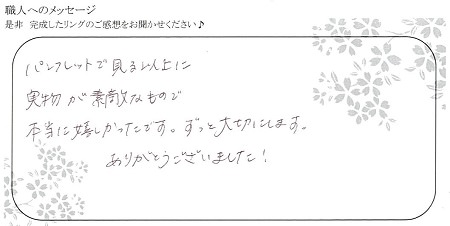 職人へのメッセージ
是非 完成したリングのご感想をお聞かせください♪
パンフレットで見る以上に
実物が素敵なもので
本当に嬉しかったです。ずっと大切にします。
ありがとうございました!